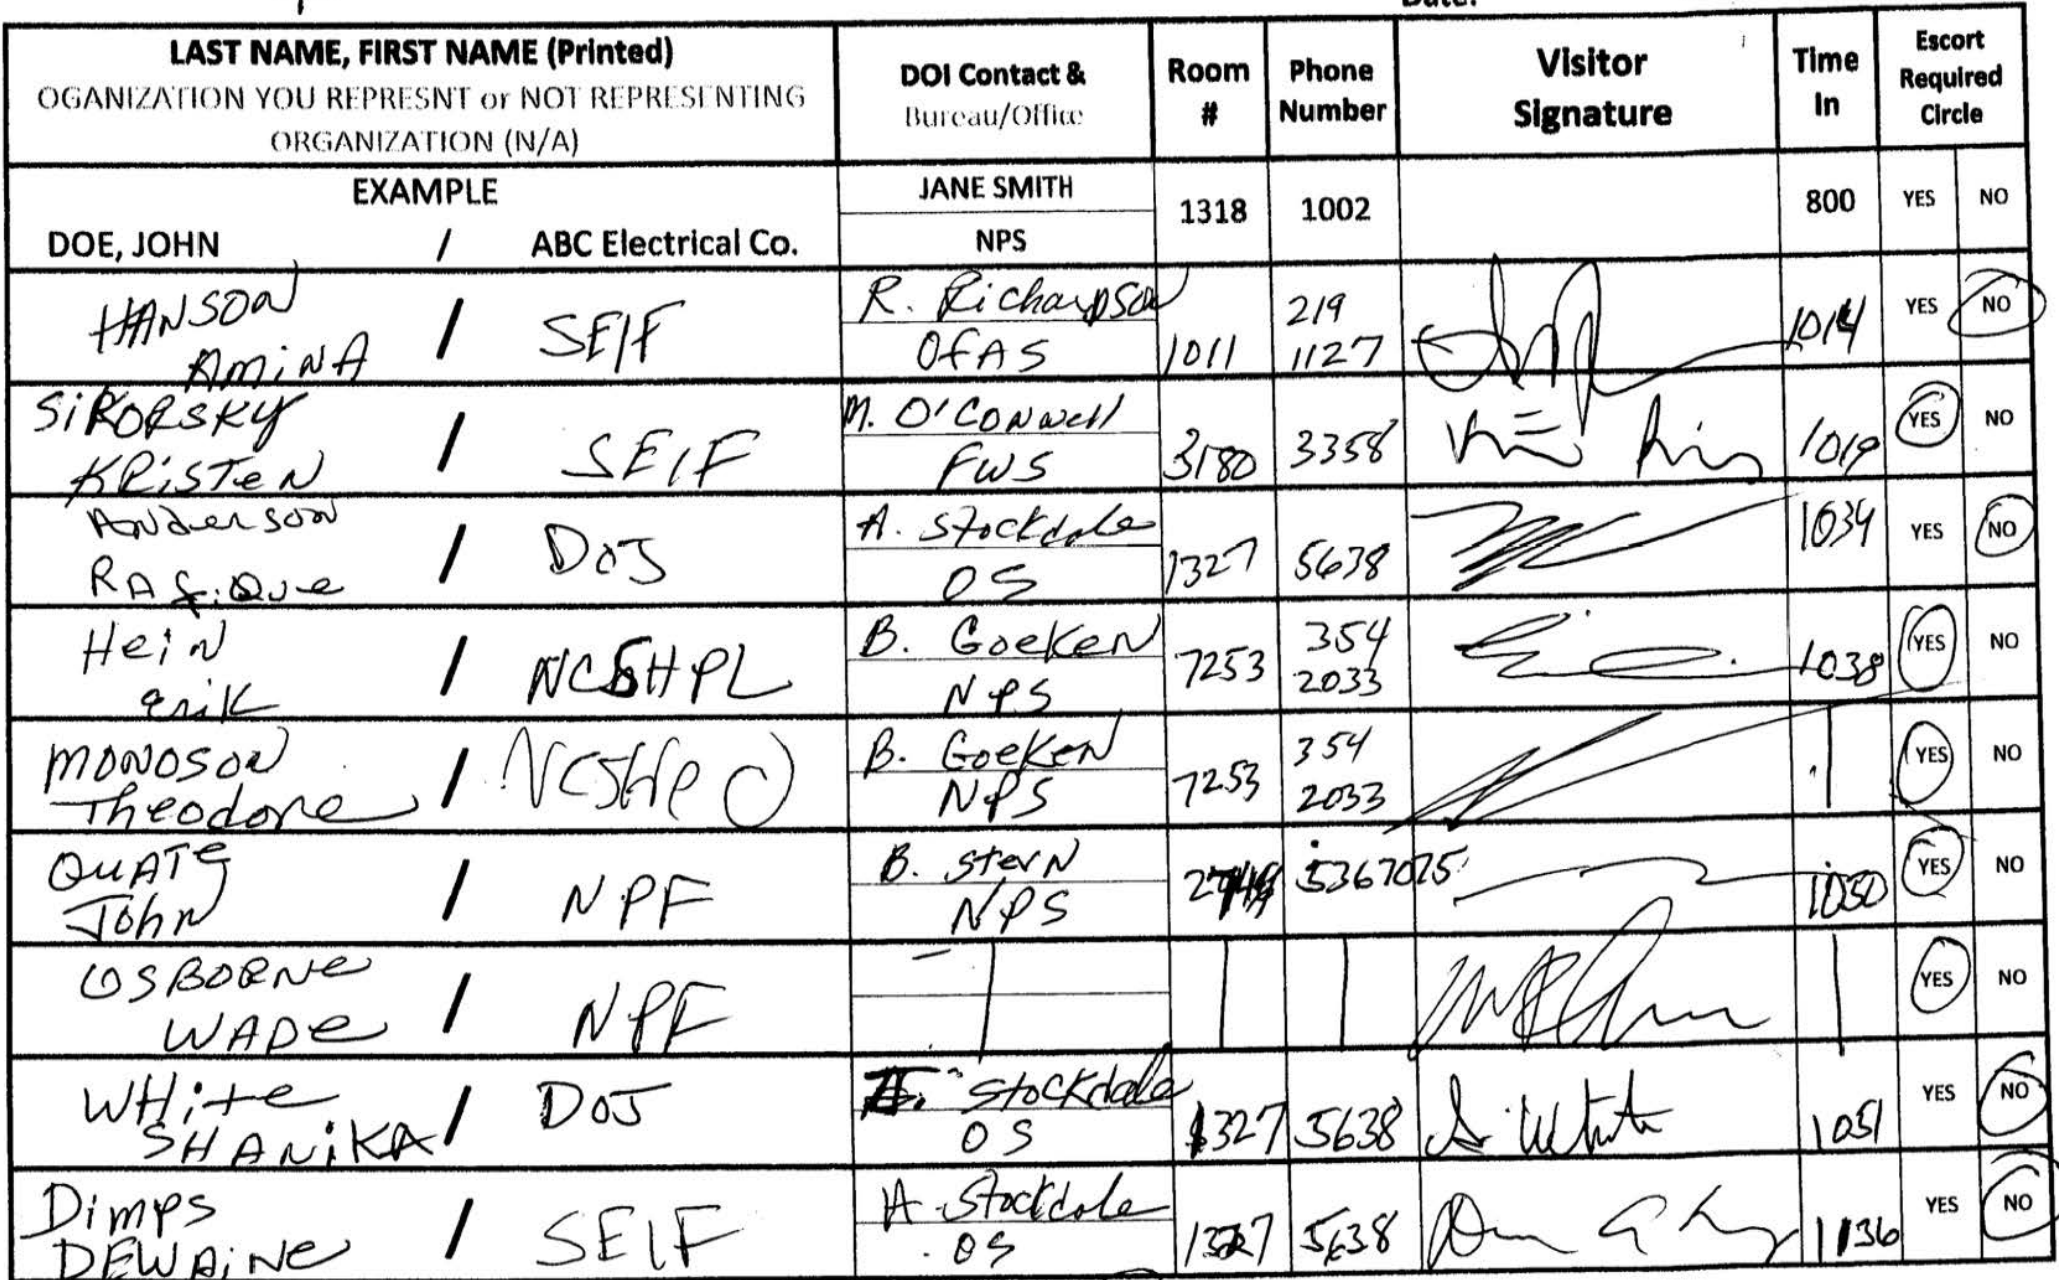 Date:
LAST NAME, FIRST NAME (Printed)
OGANIZATION YOU REPRESNT or NOT REPRESENTING
ORGANIZATION (N/A)
DOI Contact &
Bureau/Office
Room
#
Phone
Number
Visitor
Signature
Time
In
Escort
Required
Circle
EXAMPLE
DOE, JOHN / ABC Electrical Co.
JANE SMITH
NPS
1318
1002
800
YES NO
HANSON
AMiNA
/ SELF
R. RichaRDSON
OFAS
1011
219
1127
1014
YES NO
SiKORSKY
KRiSTeN
/ SELF
M. O'CONNell
FWS
3180
3358
1019
YES NO
ANderson
RAfiQue
/ DOJ
A. Stockdale
OS
1327
5638
1034
YES NO
HeiN
eriK
/ NCSHPL
B. GoeKeN
NPS
7253
354
2033
1038
YES NO
MONOSON
Theodore
/ NCSHPO
B. GoeKeN
NPS
7253
354
2033
YES NO
QUATe
John
/ NPF
B. SterN
NPS
5367075
1050
YES NO
OSBORNe
WADe
/ NPF
YES NO
WHite
SHANiKA
/ DOJ
Stockdale
OS
1327
5638
S. White
1051
YES NO
Dimps
DEWAiNe
/ SELF
A. Stockdale
OS
1327
5638
1136
YES NO